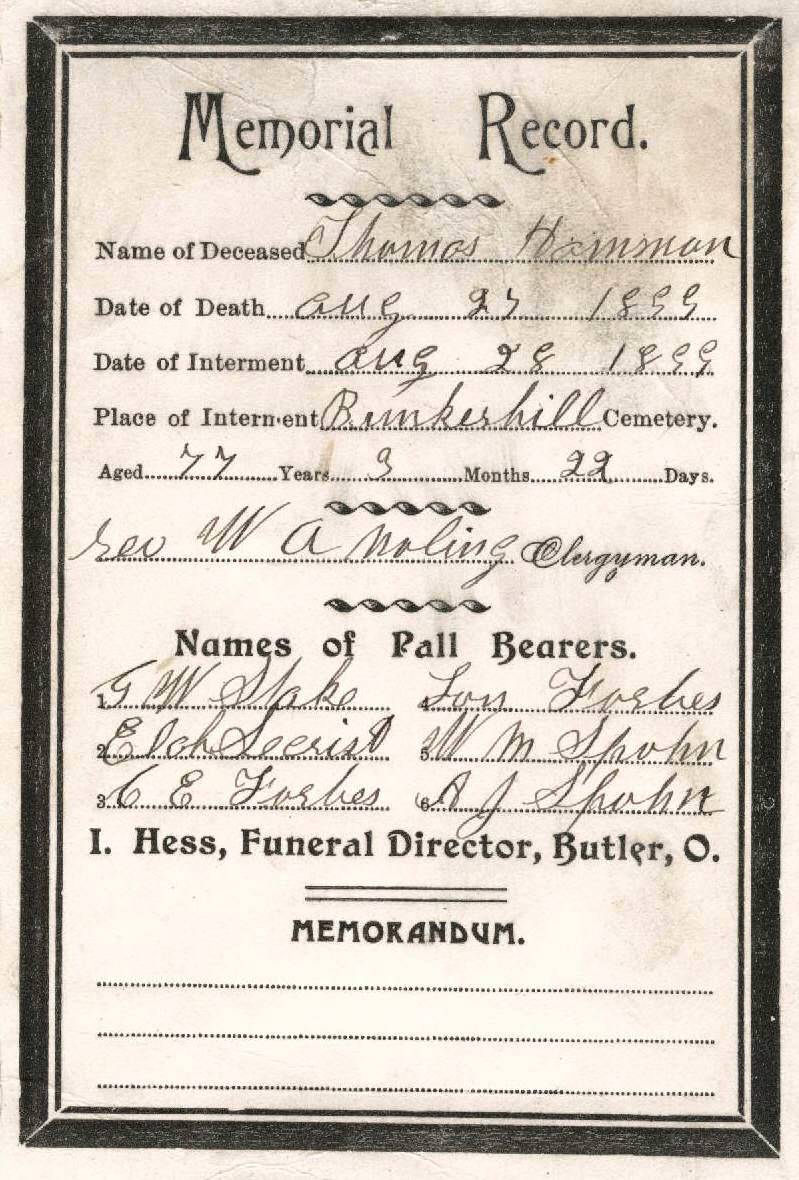 Memorial Record.
Name of Deceased Thomas Hamman
Date of Death aug 27 1899
Date of Interment aug 28 1899
Place of Interment Bunkerhill Cemetery.
Aged 77 Years 3 Months 22 Days.
Rev W A Noling Clergyman.
Names of Pall Bearers.
1. G W Stake 4. Lon Forbes
2. Secrist 5. W M Spohn
3. C E Forbes 6. A J Spohn
I. Hess, Funeral Director, Butler, O.
MEMORANDUM.